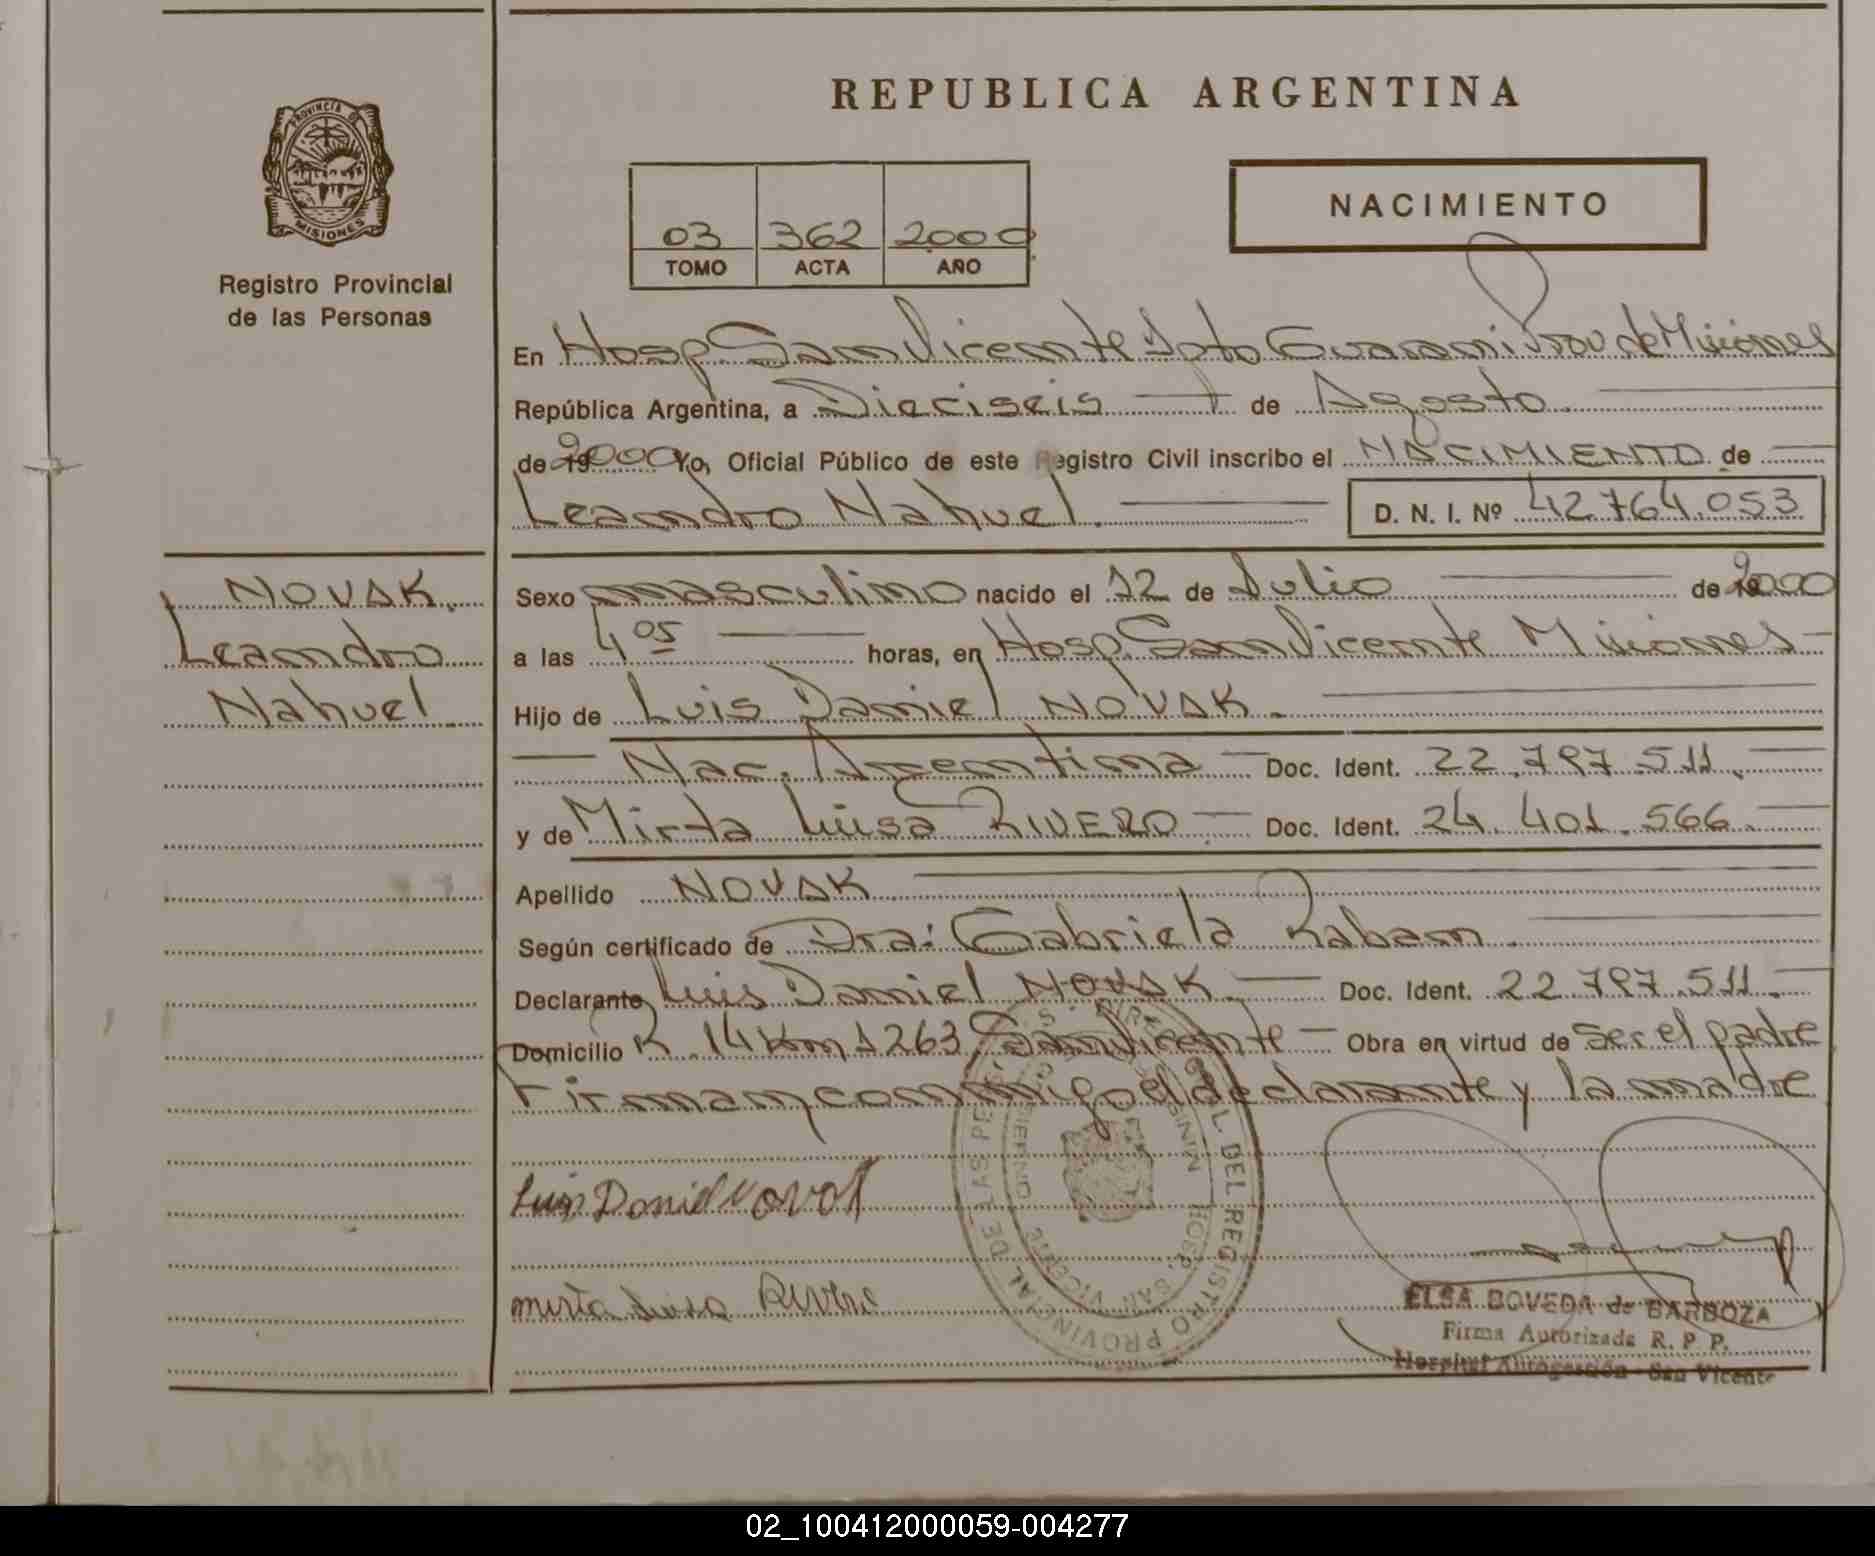 PROVINCIA DE
MISIONES
Registro Provincial
de las Personas
REPUBLICA ARGENTINA
03 362 2000
TOMO ACTA AÑO
NACIMIENTO
En Hosp. San Vicente Dpto Guarani Prov de Misiones
República Argentina, a Dieciseis de Agosto
de 2000 Yo, Oficial Público de este Registro Civil inscribo el NACIMIENTO de
Leandro Nahuel. D. N. I. Nº 42.764.053
NOVAK.
Leandro
Nahuel.
Sexo masculino nacido el 12 de Julio de 2000
a las 4 05 horas, en Hosp. San Vicente Misiones
Hijo de Luis Daniel NOVAK.
Nac. Argentina Doc. Ident. 22.797.511.
y de Mirta Luisa RIVERO Doc. Ident. 24.401.566.
Apellido NOVAK
Según certificado de Dra: Gabriela Raban.
Declarante Luis Daniel NOVAK. Doc. Ident. 22.797.511.
Domicilio R. 14 Km 1263 San Vicente Obra en virtud de ser el padre
Firman conmigo el declarante y la madre
Luis Daniel Novak
mirta Luisa Rivero
DEL REGISTRO PROVINCIAL DE LAS
HOSP. SAN VICENTE
ELSA BOVEDA de BARBOZA
Firma Autorizada R. P. P.
Hospital Autogestión - San Vicente
02_100412000059-004277